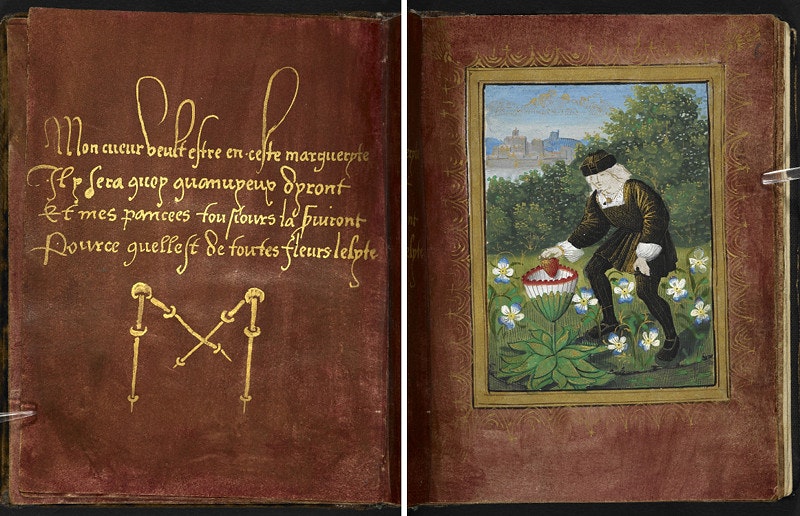 Mon cueur veult estre en ceste margueryte
Il y sera quoy quanvyeux dyront
Et mes pancees tousiours la suiront
Pource quellest de toutes fleurs leslyte